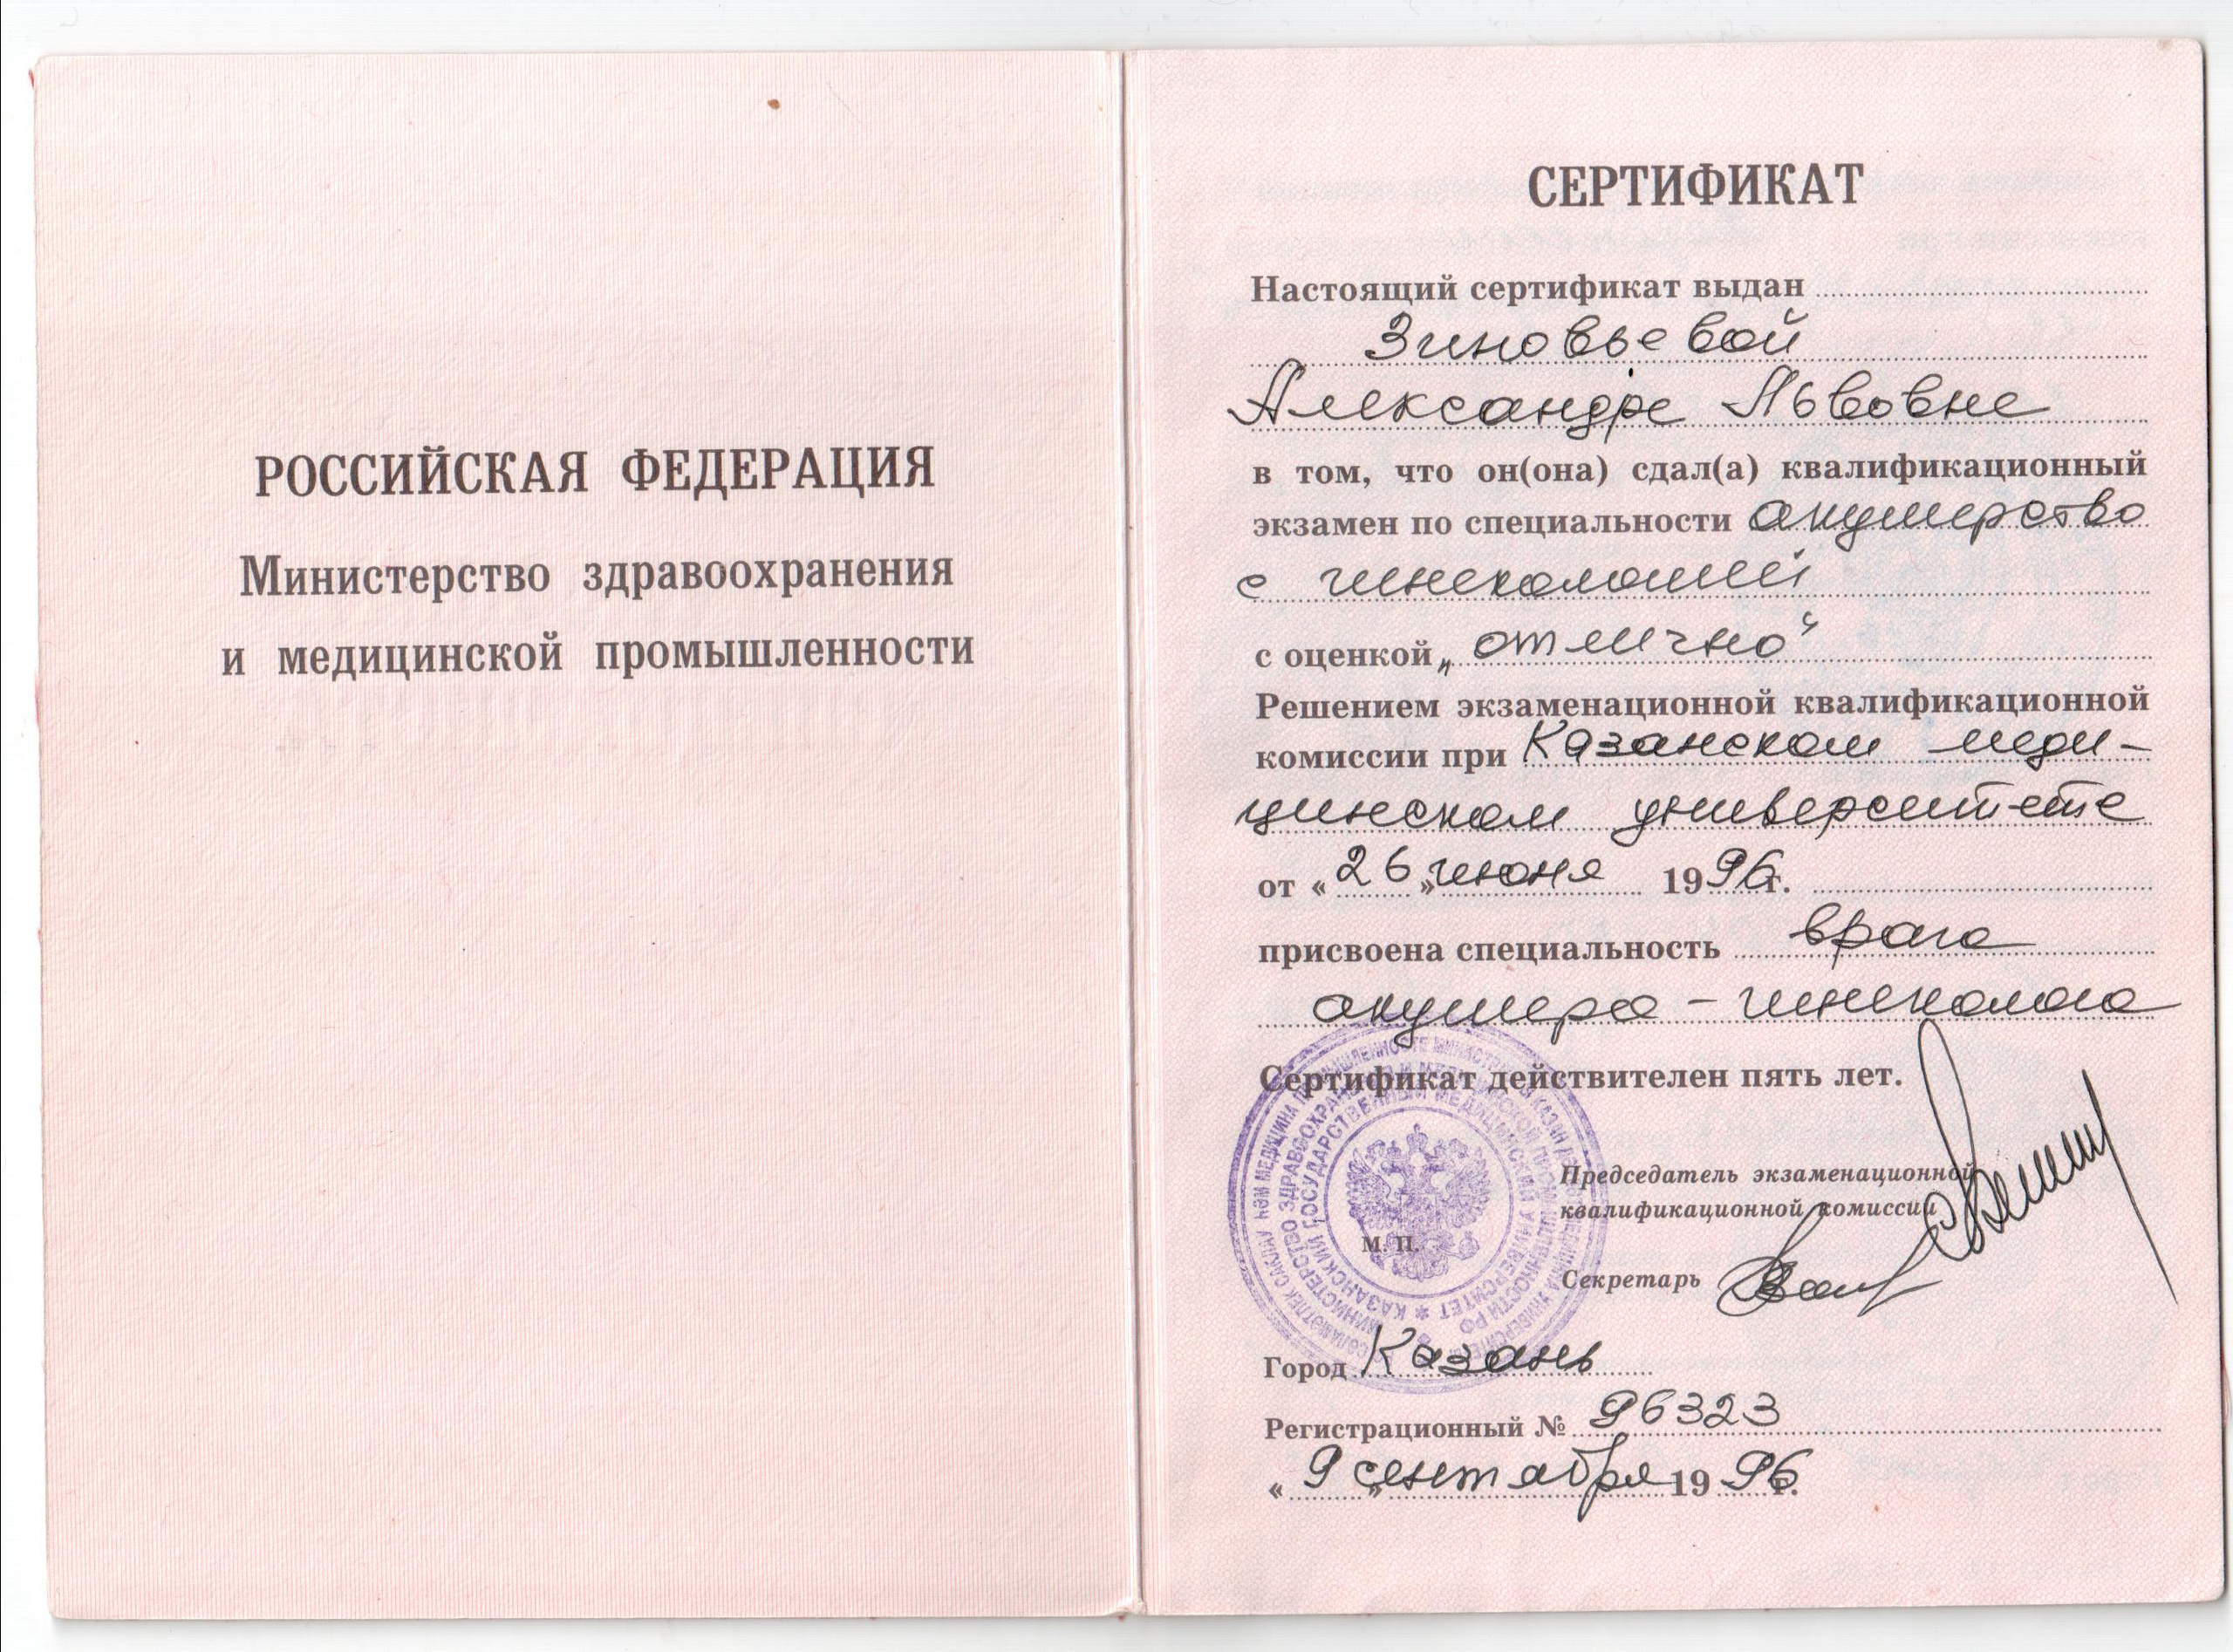 РОССИЙСКАЯ ФЕДЕРАЦИЯ
Министерство здравоохранения
и медицинской промышленности
СЕРТИФИКАТ
Настоящий сертификат выдан
Зиновьевой
Александре Львовне
в том, что он(она) сдал(а) квалификационный
экзамен по специальности акушерство
с гинекологией
с оценкой „отлично“
Решением экзаменационной квалификационной
комиссии при Казанском меди-
цинском университете
от « 26 » июня 1996г.
присвоена специальность врача
акушера - гинеколога
Сертификат действителен пять лет.
Председатель экзаменационной
квалификационной комиссии
М. П.
Секретарь
Город Казань
Регистрационный № 96323
« 9 » сентября 1996г.
МИНИСТЕРСТВО ЗДРАВООХРАНЕНИЯ И МЕДИЦИНСКОЙ ПРОМЫШЛЕННОСТИ РФ
КАЗАНСКИЙ ГОСУДАРСТВЕННЫЙ МЕДИЦИНСКИЙ УНИВЕРСИТЕТ